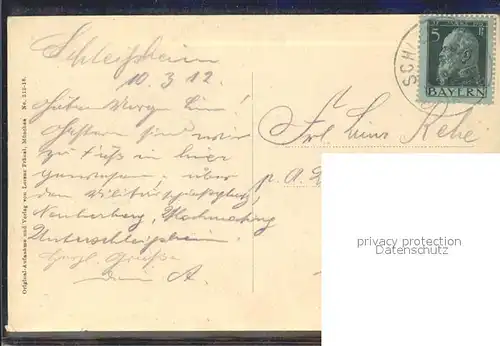 Schleißheim
10.3.12.
gestern sind wir
zu Fuß in hier
gewesen. über
den Militärschießplatz,
Neuherberg, Hochmutting
Unterschleißheim.
Herzl. Grüße
dein A.
Original-Aufnahme und Verlag von Lorenz Fränzl, München No. 212-18.
5
BAYERN
SCH
Frl.
p. A.
privacy protection
Datenschutz